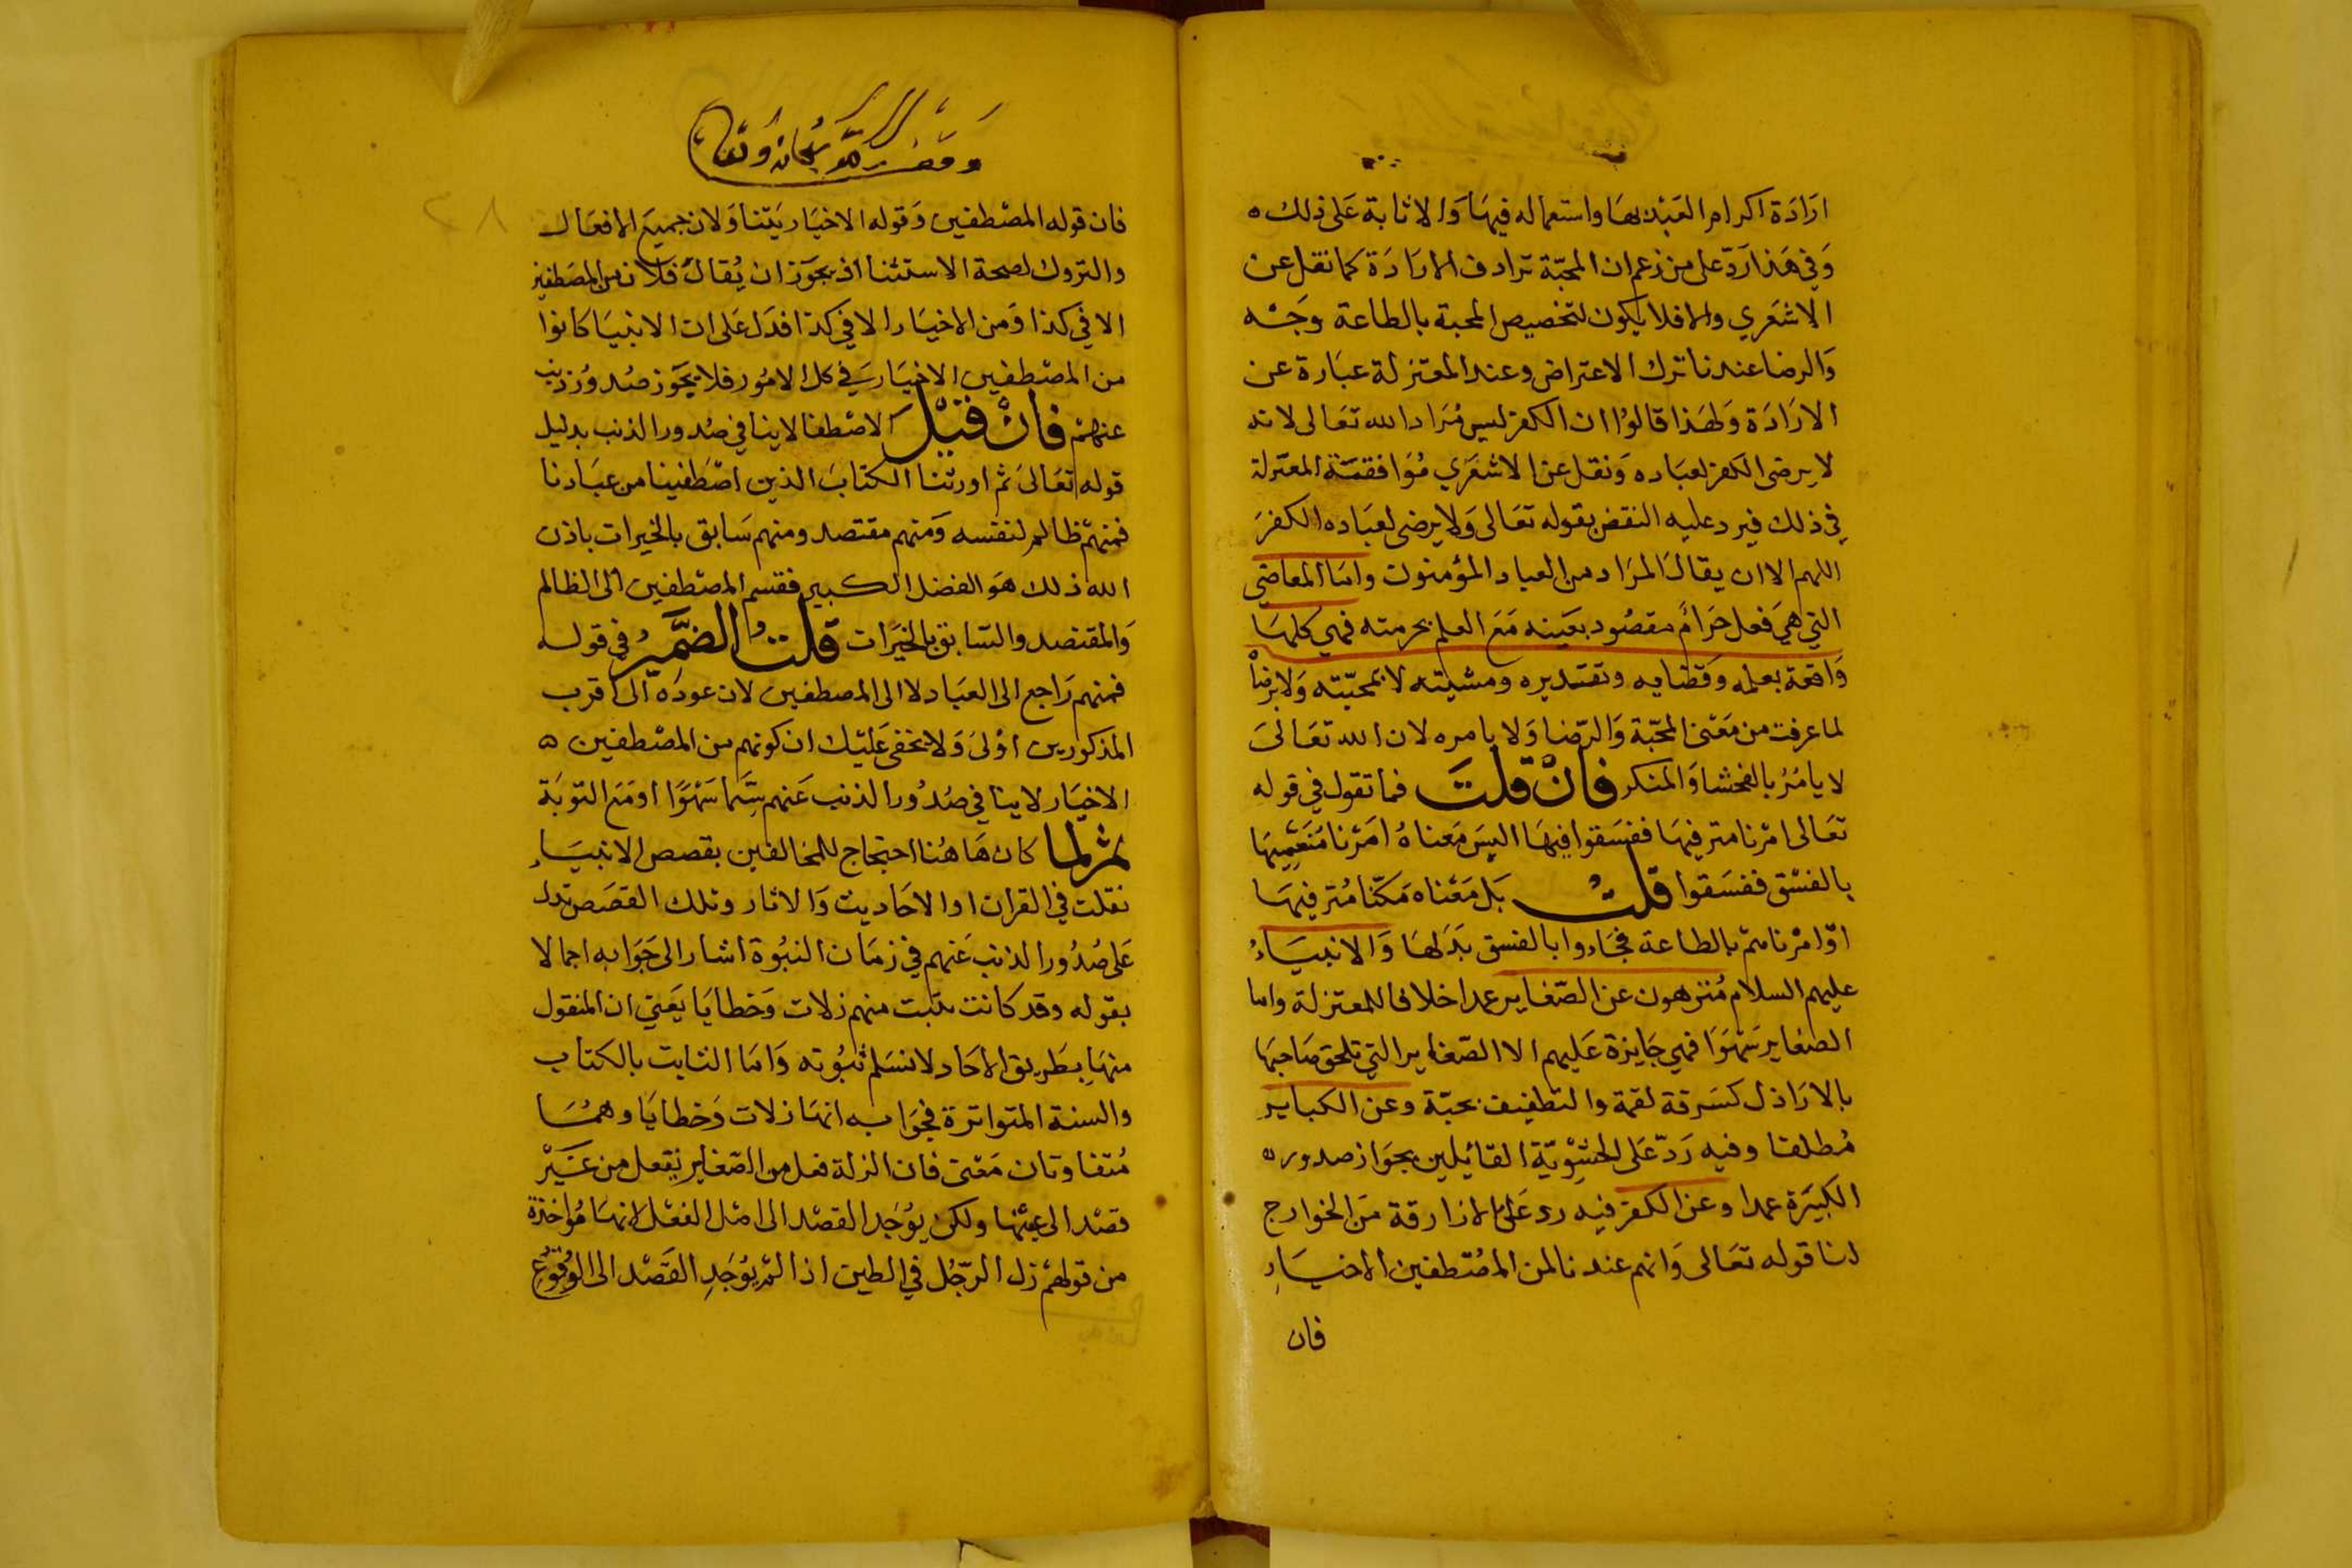 ارَادَة اكرام العَبْد بهَا واستعماله فيهَا وَالاثابة عَلى ذلك ه
وَفي هَذا رَدّ على من زعم ان المحبّة ترادف الارَادَة كما نقل عن
الاشعَري والا فلا يكون لتخصيص المحبة بالطاعة وَجْه
وَالرضا عندنا ترك الاعتراض وعند المعتزلة عبَارة عن
الارَادَة وَلهَذا قالوُا ان الكفر ليس مُرَاد الله تعَالى لانه
لا يرضى الكفر لعبَاده وَنقل عن الاشعَري مُوَافقة المعتزلة
في ذلك فيرد عليه النقض بقوله تعَالى وَلا يرضى لعبَاده الكفرَ
اللهم الا ان يقالَ المرَاد من العباد المؤمنون وامّا المعاصي
التي هيَ فعل حَرَام مقصُود بعَينه مَعَ العلم بحرمته فهي كلهَا
وَاقعة بعلمه وَقضايه وتقديره ومشيته لا بمحبّته وَلا برضاْ
لما عرفت من مَعْنى المحبّة وَالرّضا وَلا بامره لان الله تعَالىَ
لا يامُرُ بالفحشا وَالمنكر فانْ قلتَ فما تقول في قوله
تعَالى امْرنا مترفيهَا ففسَقوا فيهَا اليسَ مَعناهُ امَرْنا مُنَعَّميهَا
بالفسْق ففسَقوا قلتُ بَل مَعْناه مَكّنا مُترفيهَا
اوْ امرْناهمْ بالطاعة فجَاءوا بالفسق بَدَلهَا وَالانبيَاءُ
عليهم السلام مُنزهون عن الصّغاير عمدا خلافا للمعتزلة واما
الصغاير سَهْوَا فهي جَايزة عَليهم الا الصّغاير التي تلحق صَاحبهَا
بالارَاذل كسَرقة لقمة والتطفيف بحبّة وعن الكبائر
مُطلقا وفيه رَدّ عَلى الحَشْوِيّة القائيلين بجوَاز صدوره
الكبيَرة عمدا وعن الكفر فيه رد عَلى الازارقة مَن الخوارج
لنا قوله تعَالى وَانهم عندنا لمن المصُطفين الاخيَارِ
فان
وقف لله سبحانه وتعالى
٢٨
فان قوله المصْطفين وَقوله الاخيَار يَتناوَلان جميعَ الافعَال
والتروك لصحة الاستثنا اذ يجوَز ان يُقالَ فلان من المصَطفين
الا في كذا وَمن الاخيَار الا في كذا فدَل عَلى ان الانبيَا كانوا
من المصْطفين الاخيَار في كل الامُور فلا يجَوز صُدوُر ذنب
عنهمْ فانْ قيْلَ الاصْطفا لا ينافي صُدور الذنب بدليل
قوله تعَالىَ ثم اورثنا الكتابَ الذين اصْطَفينا من عبَادنا
فمنهمْ ظالم لنفسه وَمنهم مقتصد ومنهم سَابق بالخيرات باذن
الله ذلك هوَ الفضل الكبير فقسم المصْطفين الى الظالم
وَالمقتصد والسّابق بالخيَرات قلتُ الضَّميرُ في قوله
فمنهم رَاجع الى العبَاد لا الى المصطفين لان عودَه الى اقرب
المذكورين اوْلىَ وَلا يخفى عَليْك ان كونهم من المصْطفين ه
الاخيَار لا ينافي صُدوُر الذنب عَنهم سِيَّما سَهْوًا او مَعَ التوبَة
ثم لما كان هَاهُنا احتجاج للمخالفين بقصص الانبيَاءِ
نقلت في القران او الاحَاديث وَالاثار وتلك القصَص تدل
عَلى صُدُور الذنب عَنهم في زمَان النبُوة اشار الى جَوَابه اجمالا
بقوله وقد كانت منهم زلات وَخطايَا يَعني ان المنقول
منهَا بطَريق الاحَاد لا نسَلم ثبُوته وَامّا الثابت بالكتاب
والسنة المتواترة فجوَابه انهَا زلات وَخطايَا وهمُسَا
مُتفاوتان مَعْنى فان الزلة فعل من الصّغاير يفعل من غيَرْ
قصْد الى عَيْنها ولكن يوُجَد القصْد الى اصْل الفعْل لانهَا مُؤاخذة
من قولهمْ زل الرّجُل في الطين اذا لمْ يوُجَدِ القَصْد الى الوُقوُع